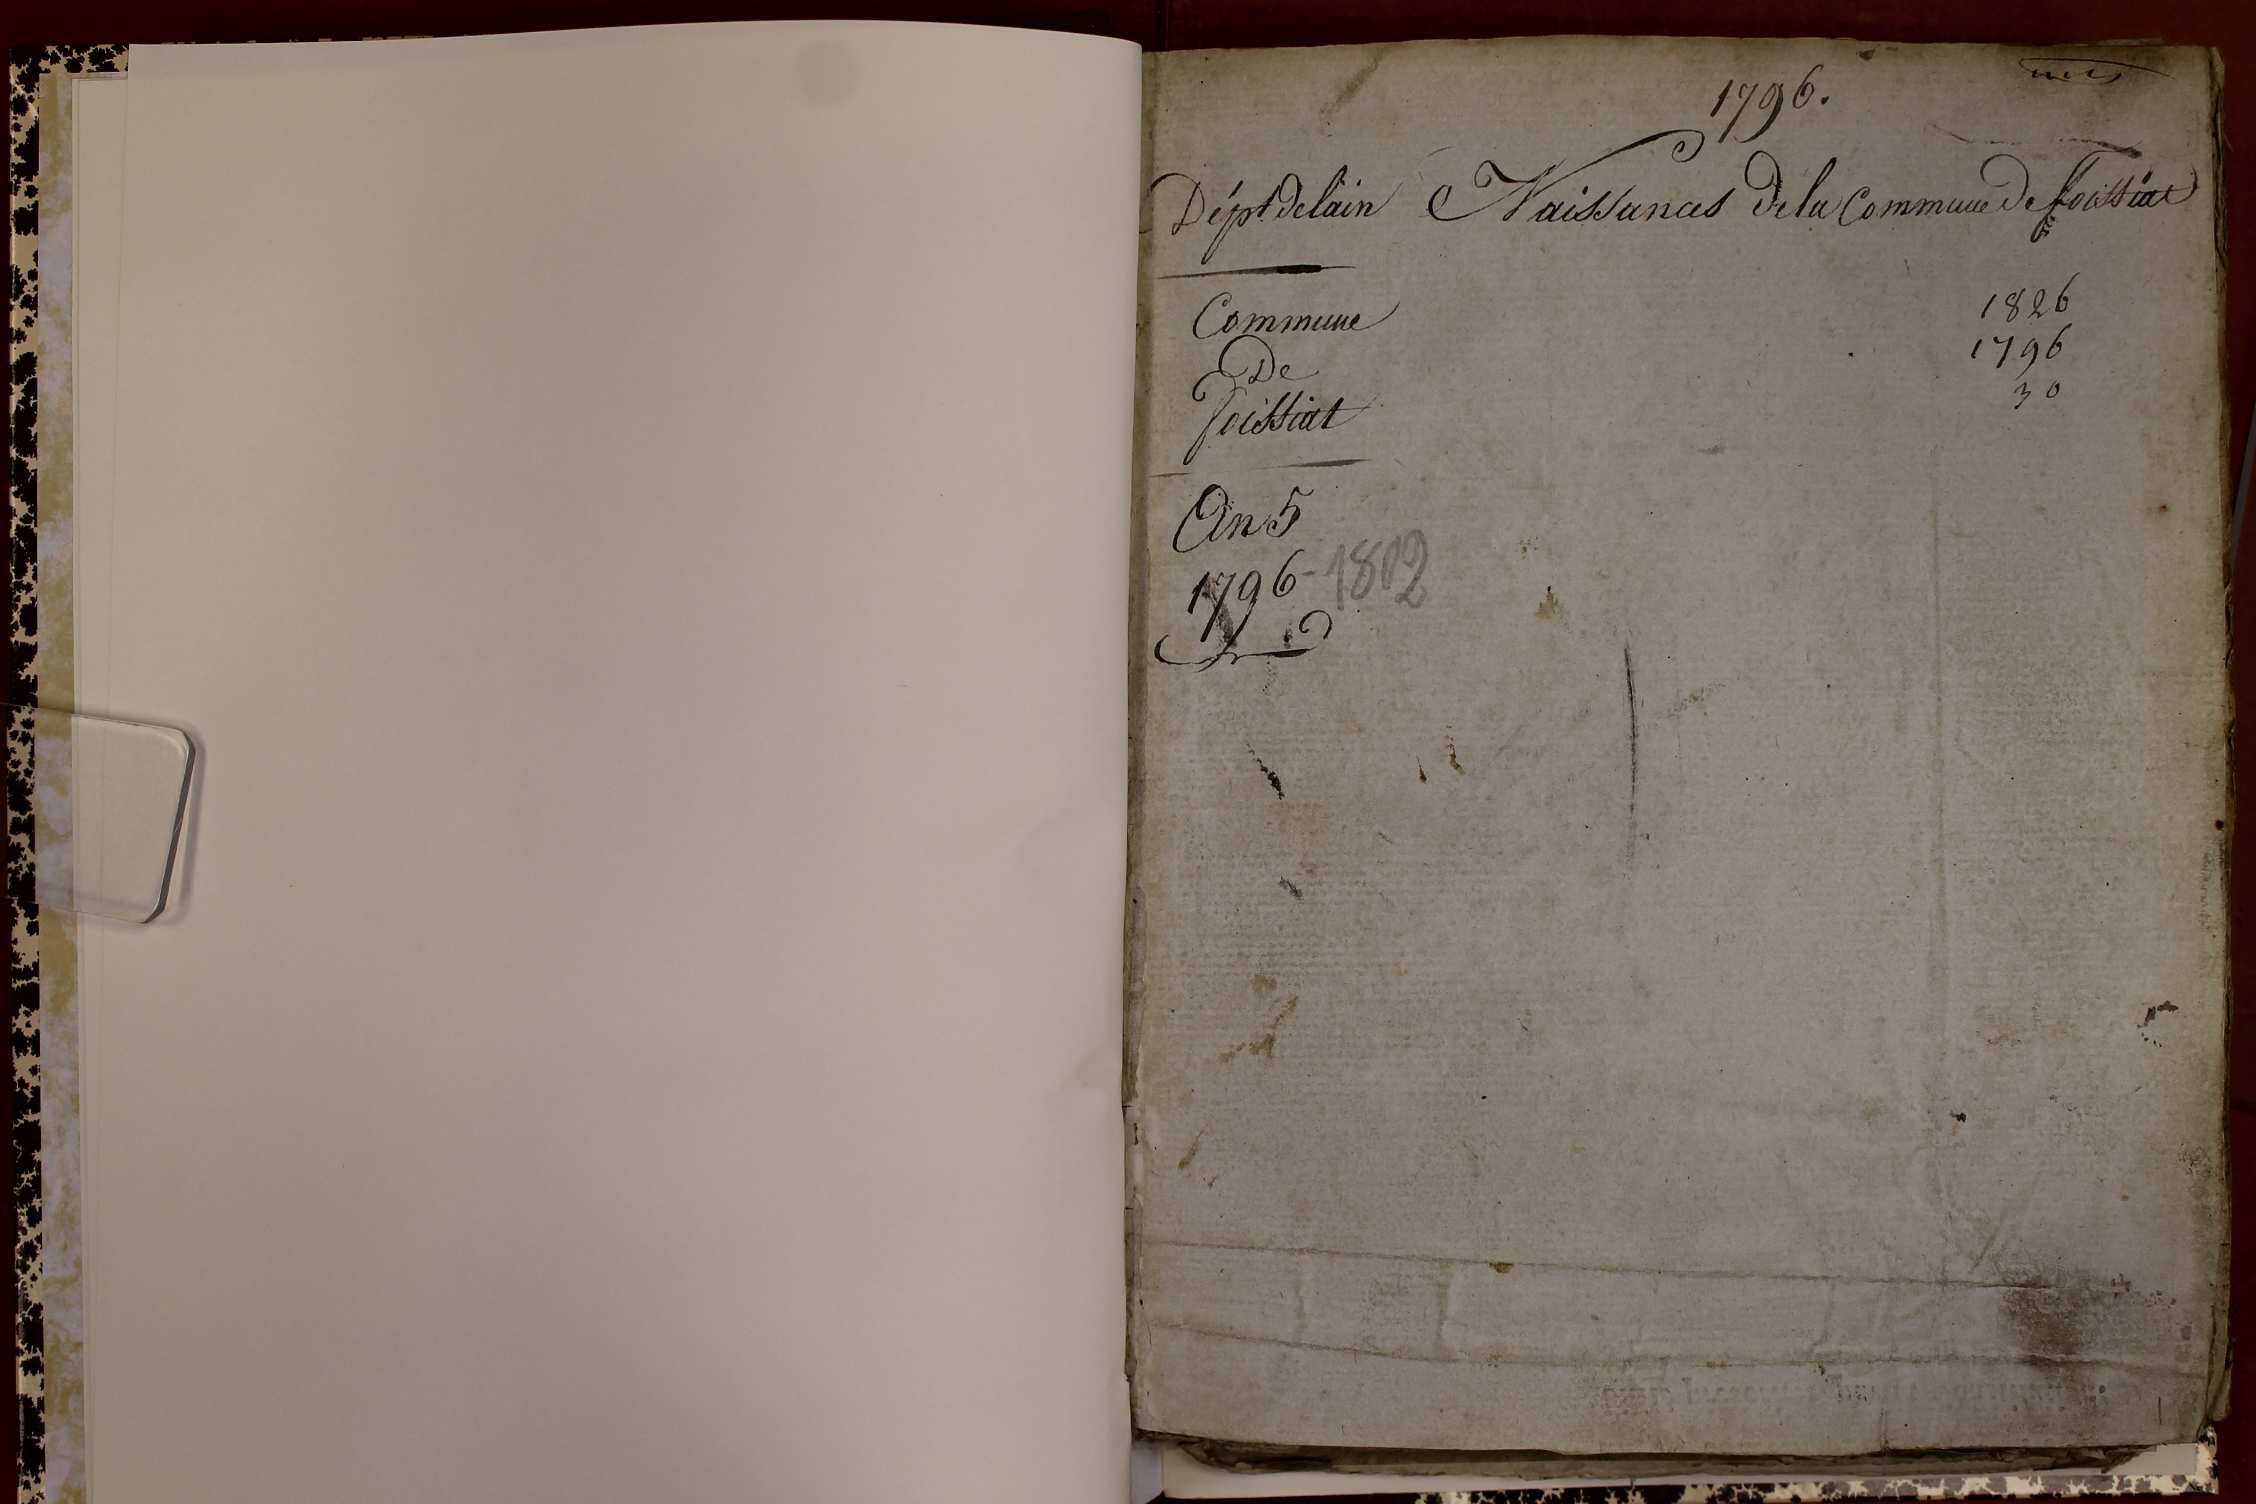 1796.
Dépt. de lain Naissances de la Commune de foissiat
Commune
De
foissiat
1826
1796
30
An 5
1796 - 1802